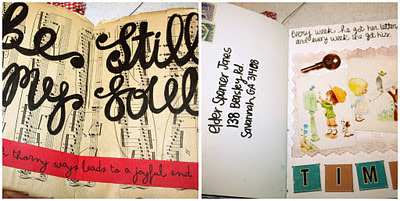 be still
my soul
thorny ways leads to a joyful end
Elder Spencer Jones
138 Beasley Rd.
Savannah, GA 31408
Every week she got her letter
and every week she got his.
TIM